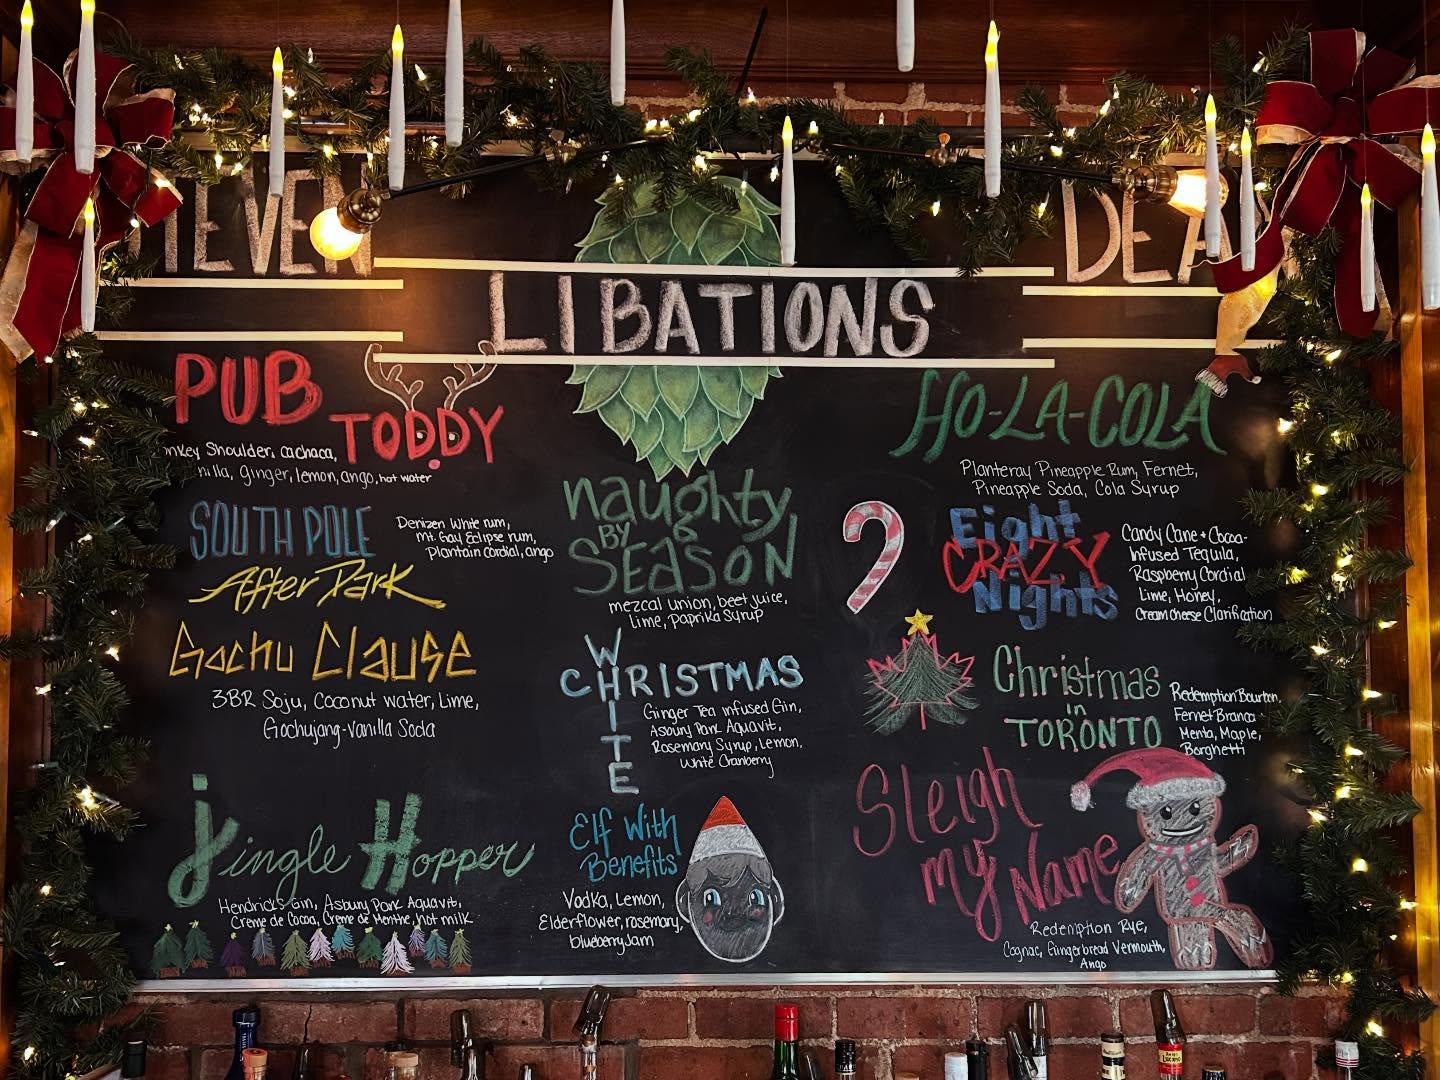 TEVEN
DEA
LIBATIONS
PUB
TODDY
onkey Shoulder, cachaca,
nilla, ginger, lemon, ango, hot water
SOUTH POLE
After Dark
Denizen White rum,
Mt. Gay Eclipse rum,
Plantain Cordial, ango
Gochu Clause
3BR Soju, Coconut water, Lime,
Gochujang-Vanilla Soda
Jingle Hopper
Hendrick's Gin, Asbury Park Aquavit,
Creme de Cocoa, Creme de Menthe, hot milk
naughty
BY
SEASON
mezcal union, beet juice,
lime, paprika syrup
WHITE
CHRISTMAS
Ginger Tea infused Gin,
Asbury Park Aquavit,
Rosemary Syrup, Lemon,
White Cranberry
Elf With
Benefits
Vodka, Lemon,
Elderflower, rosemary,
blueberry Jam
HO-LA-COLA
Planteray Pineapple Rum, Fernet,
Pineapple Soda, Cola Syrup
Eight
CRAZY
Nights
Candy Cane + Cocoa-
Infused Tequila,
Raspberry Cordial
Lime, Honey,
Cream Cheese Clarification
Christmas
in
TORONTO
Redemption Bourbon,
Fernet Branca
Menta, Maple,
Borghetti
Sleigh
my Name
Redemption Rye,
Cognac, Gingerbread Vermouth,
Ango